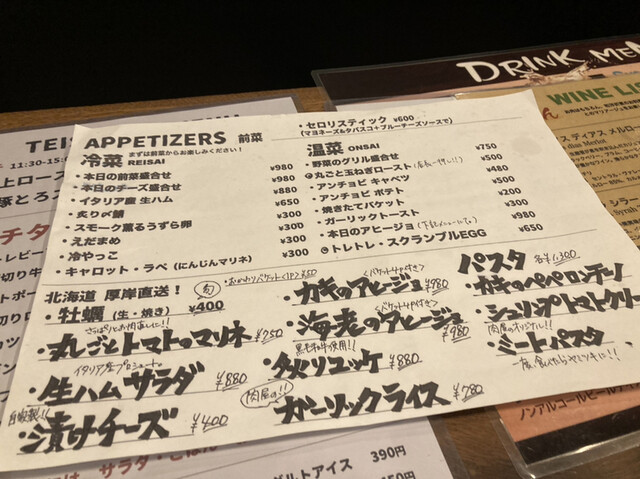 DRINK MEN
WINE LI
APPETIZERS 前菜
まずは前菜からお楽しみください！
冷菜 REISAI
・本日の前菜盛合せ ¥980
・本日のチーズ盛合せ ¥980
・イタリア産 生ハム ¥880
・炙り〆鯖 ¥650
・スモーク薫るうずら卵 ¥300
・えだまめ ¥300
・冷やっこ ¥300
・キャロット・ラペ（にんじんマリネ） ¥300
・セロリスティック ¥600
（マヨネーズ&タバスコ+ブルーチーズソースで）
温菜 ONSAI
・野菜のグリル盛合せ ¥750
・丸ごと玉ねぎロースト ¥500
・アンチョビ キャベツ ¥480
・アンチョビ ポテト ¥200
・焼きたてバケット ¥300
・ガーリックトースト ¥300
・本日のアヒージョ ¥980
・トレトレ・スクランブルEGG ¥650
北海道 厚岸直送！ 旬
・牡蠣（生・焼き） ¥400
さっぱりとお肉前に!!
・丸しごとトマトのマリネ ¥250
イタリア産プロシュート
・生ハムサラダ ¥880
自家製!!
・漬けチーズ ¥400
・おかわりバケット
（バケット4P付き）
・カキのアヒージョ ¥980
（バケット4P付き）
・海老のアヒージョ ¥980
黒毛和牛使用!!
・炙りユッケ ¥880
肉屋の!!
・ガーリックライス ¥780
パスタ 各¥1,300
・カキのペペロンチーノ
・シュリンプトマトクリ
肉屋のオリジナル!!
・ミートパスタ
11:30-15:
上ロース
豚とろス
ノンアルコールビール
390円